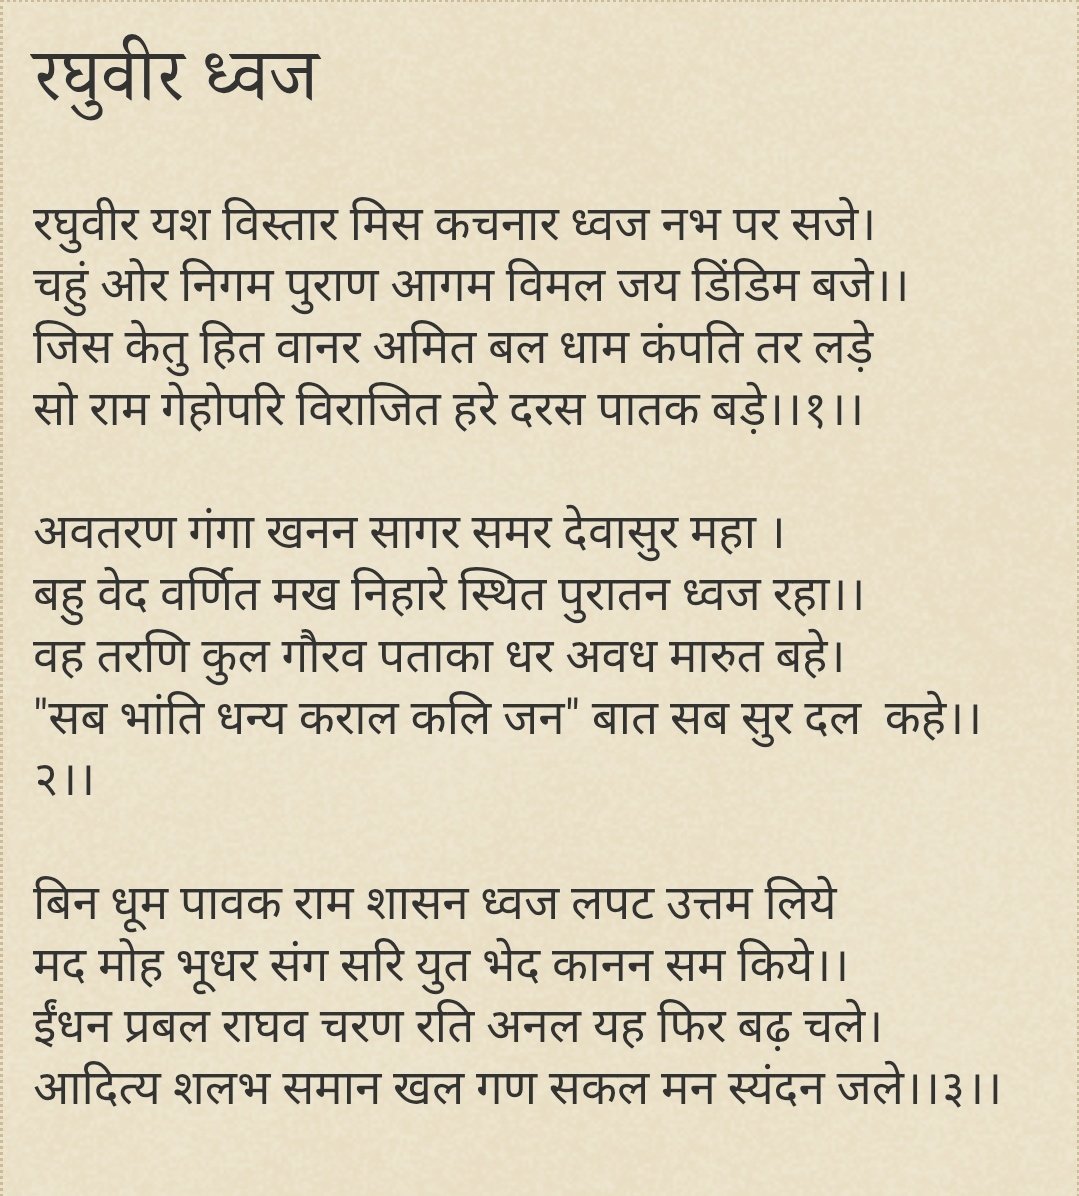 रघुवीर ध्वज
रघुवीर यश विस्तार मिस कचनार ध्वज नभ पर सजे।
चहुं ओर निगम पुराण आगम विमल जय डिंडिम बजे।।
जिस केतु हित वानर अमित बल धाम कंपति तर लड़े
सो राम गेहोपरि विराजित हरे दरस पातक बड़े।।१।।
अवतरण गंगा खनन सागर समर देवासुर महा ।
बहु वेद वर्णित मख निहारे स्थित पुरातन ध्वज रहा।।
वह तरणि कुल गौरव पताका धर अवध मारुत बहे।
"सब भांति धन्य कराल कलि जन" बात सब सुर दल  कहे।।
२।।
बिन धूम पावक राम शासन ध्वज लपट उत्तम लिये
मद मोह भूधर संग सरि युत भेद कानन सम किये।।
ईंधन प्रबल राघव चरण रति अनल यह फिर बढ़ चले।
आदित्य शलभ समान खल गण सकल मन स्यंदन जले।।३।।